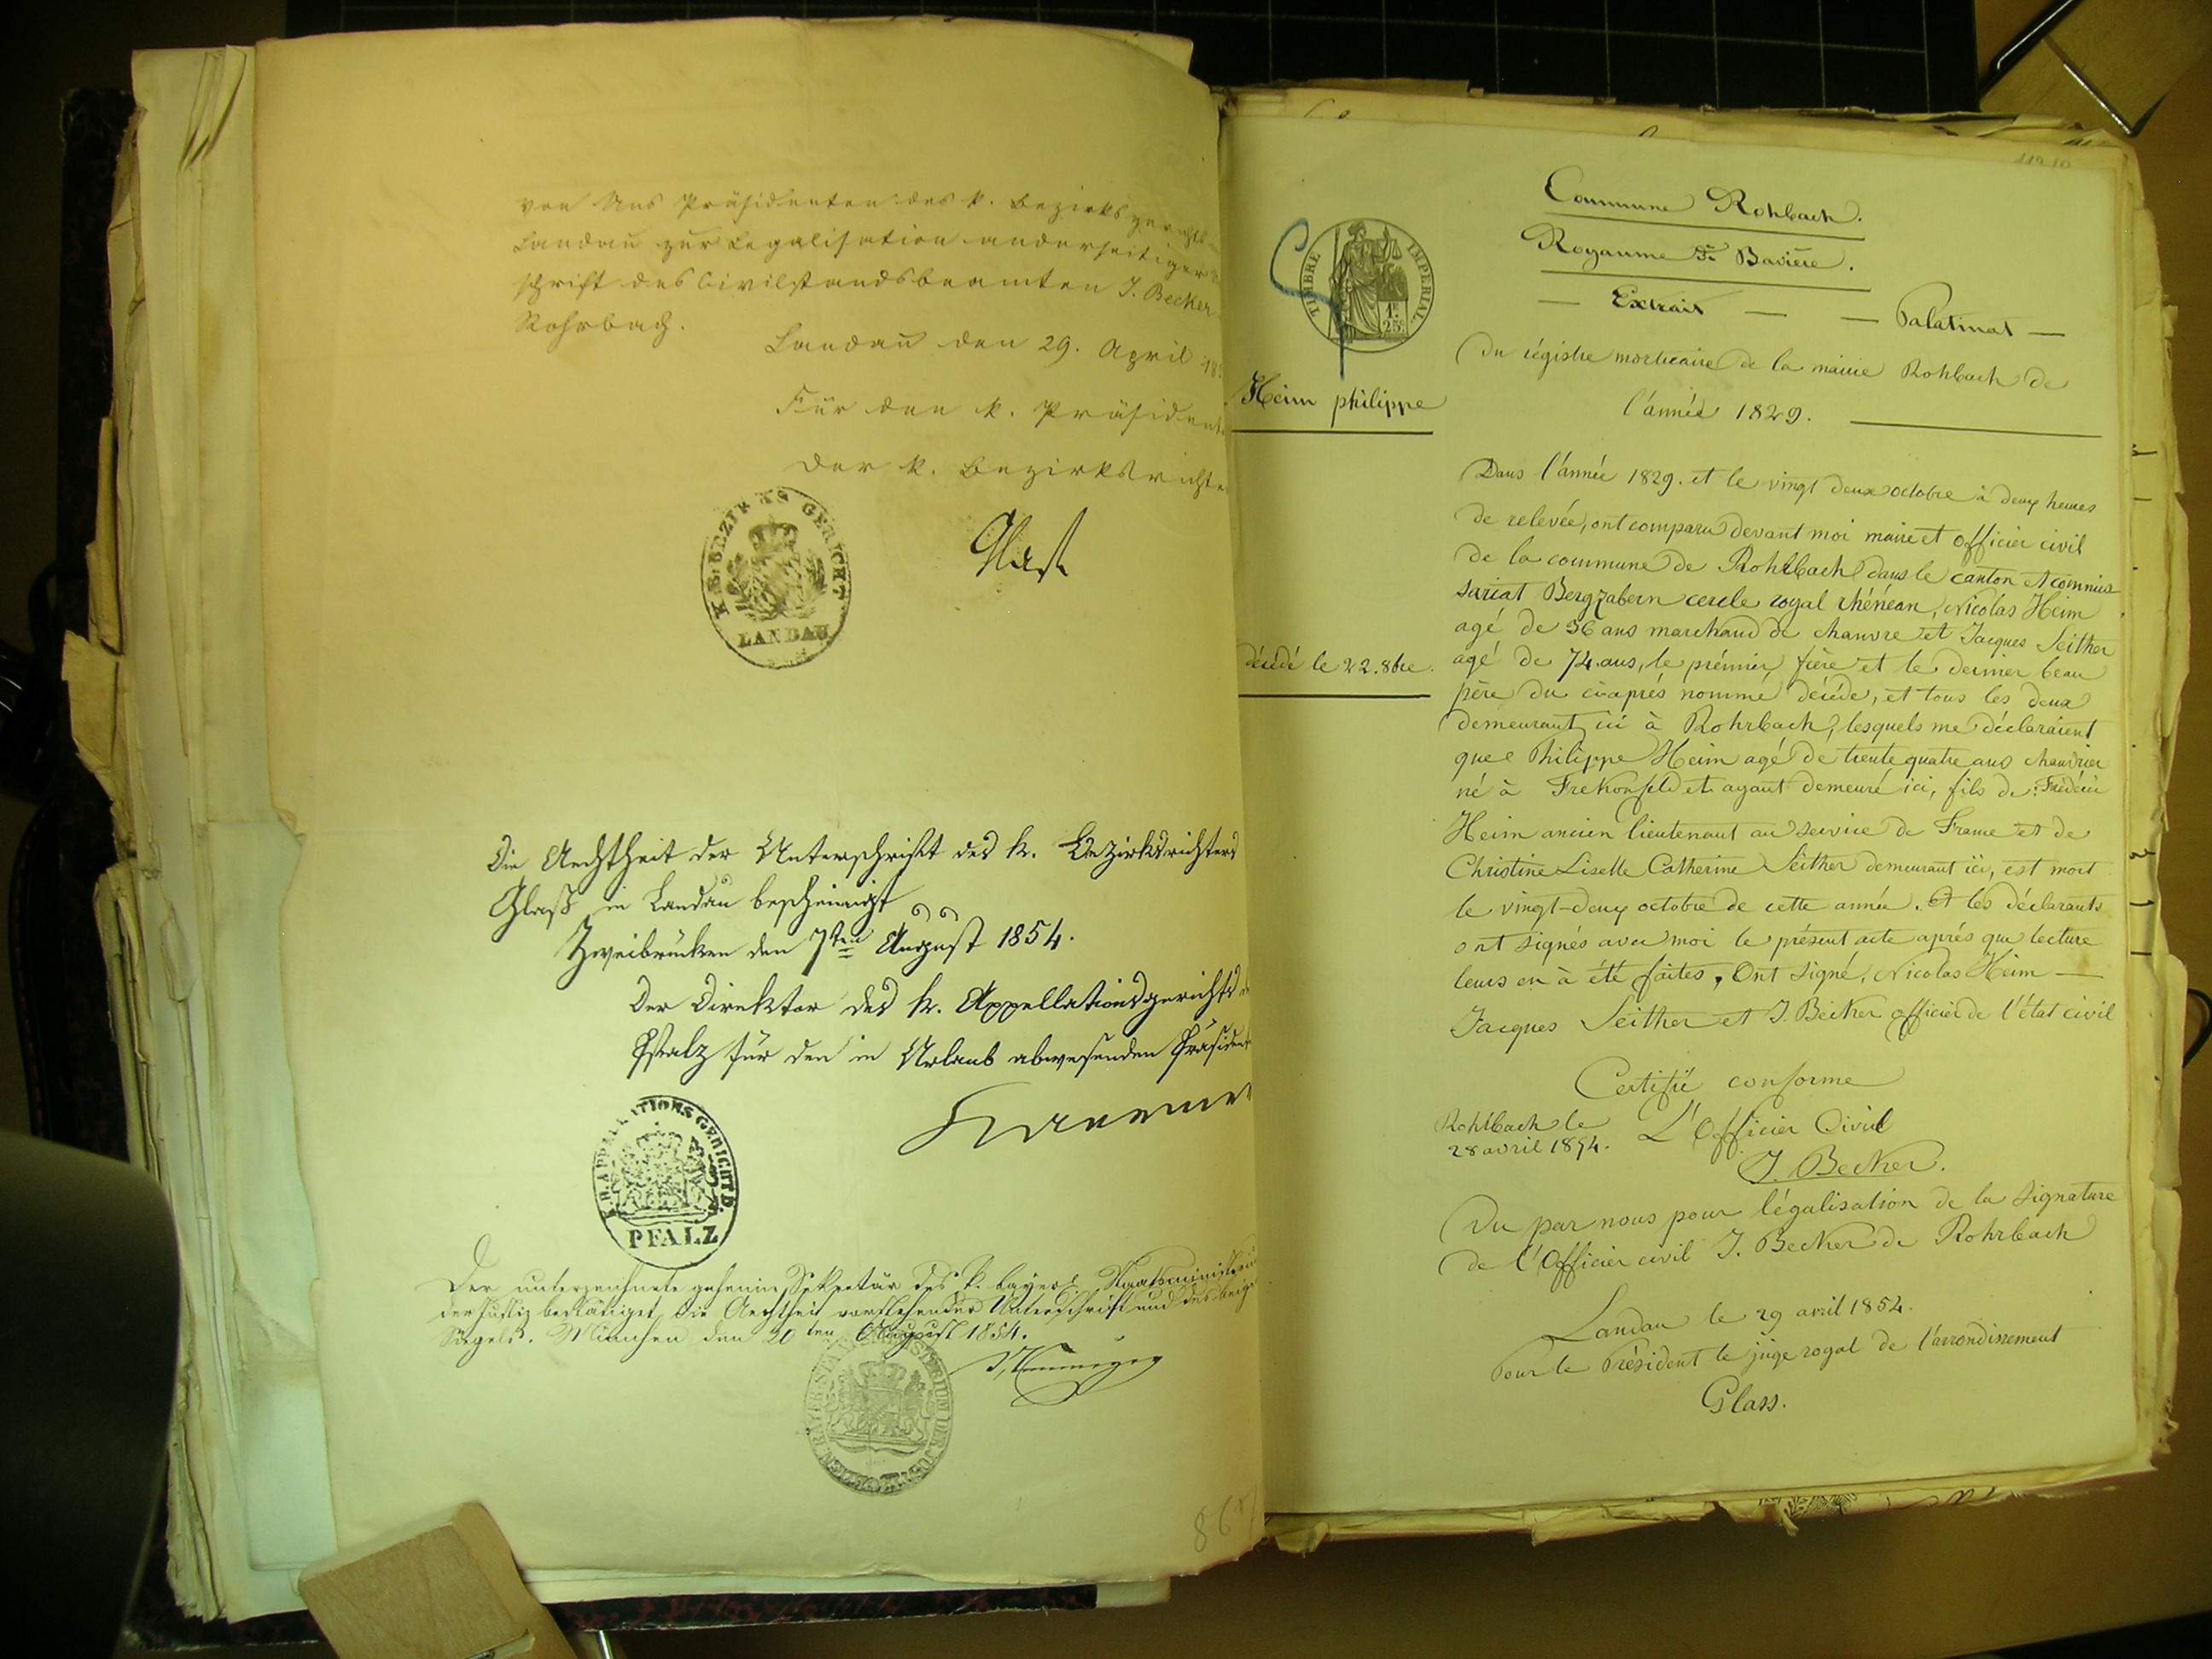 von Uns Präsidenten des k. Bezirksgerichts
Landau zur Legalisation anderseitiger
schrift des Civilstandsbeamten J. Becker
Rohrbach.
Landau den 29. April 185
Für den k. Präsidenten
Der k. Bezirksrichter
K. B. BEZIRKS GERICHT
LANDAU
Glaß
Die Aechtheit der Unterschrift des k. Bezirksrichters
Glaß in Landau bescheinigt
Zweibrücken den 7ten August 1854.
Der Direktor des k. Appellationsgerichts der
Pfalz für den in Urlaub abwesenden Präsidenten
K. B. APPELLATIONS GERICHT D.
PFALZ
Der unterzeichnete geheime Sekretär des k. bayer. Staatsministeriums
der Justiz bestätiget die Aechtheit vorstehender Unterschrift und des beige
Siegels. München den 20ten August 1854.
Commune Rohbach.
Royaume de Bavière.
— Extrait — — Palatinat —
TIMBRE IMPERIAL
1F.
25C.
Du régistre mortuaire de la mairie Rohbach de
l'année 1829.
Heim philippe
Dans l'année 1829. et le vingt deux octobre à deux heures
de relevée, ont comparu devant moi maire et officier civil
de la commune de Rohlbach dans le canton et commis
sariat Bergzabern cercle royal rhénéan, Nicolas Heim
agé de 36 ans marchand de chanvre et Jacques Seither
décédé le 22. 8bre.
agé de 74 ans, le prémier, frère et le dernier beau
père du ci-aprés nommé décédé, et tous les deux
demeurant ici à Rohrbach, lesquels me déclaraient
que Philippe Heim agé de trente quatre ans chanvrier
né à Frekonfeld et ayant demeuré ici, fils de: Frédéric
Heim ancien lieutenant au service de France et de
Christine Liselle Catherine Seither demeurant ici, est mort
le vingt-deux octobre de cette année. Et les déclarants
ont signés avec moi le présent acte aprés que lecture
leurs en à été faites, Ont signé, Nicolas Heim —
Jacques Seither et J. Becker officier de l'état civil
Certifié conforme
Rohlbach le
28 avril 1854.
L'Officier Civil
J. Becker.
Vu par nous pour légalisation de la signature
de l'Officier civil J. Becker de Rohrbach
Landau le 29 avril 1854.
Pour le Président le juge royal de l'arrondissement
Glass.